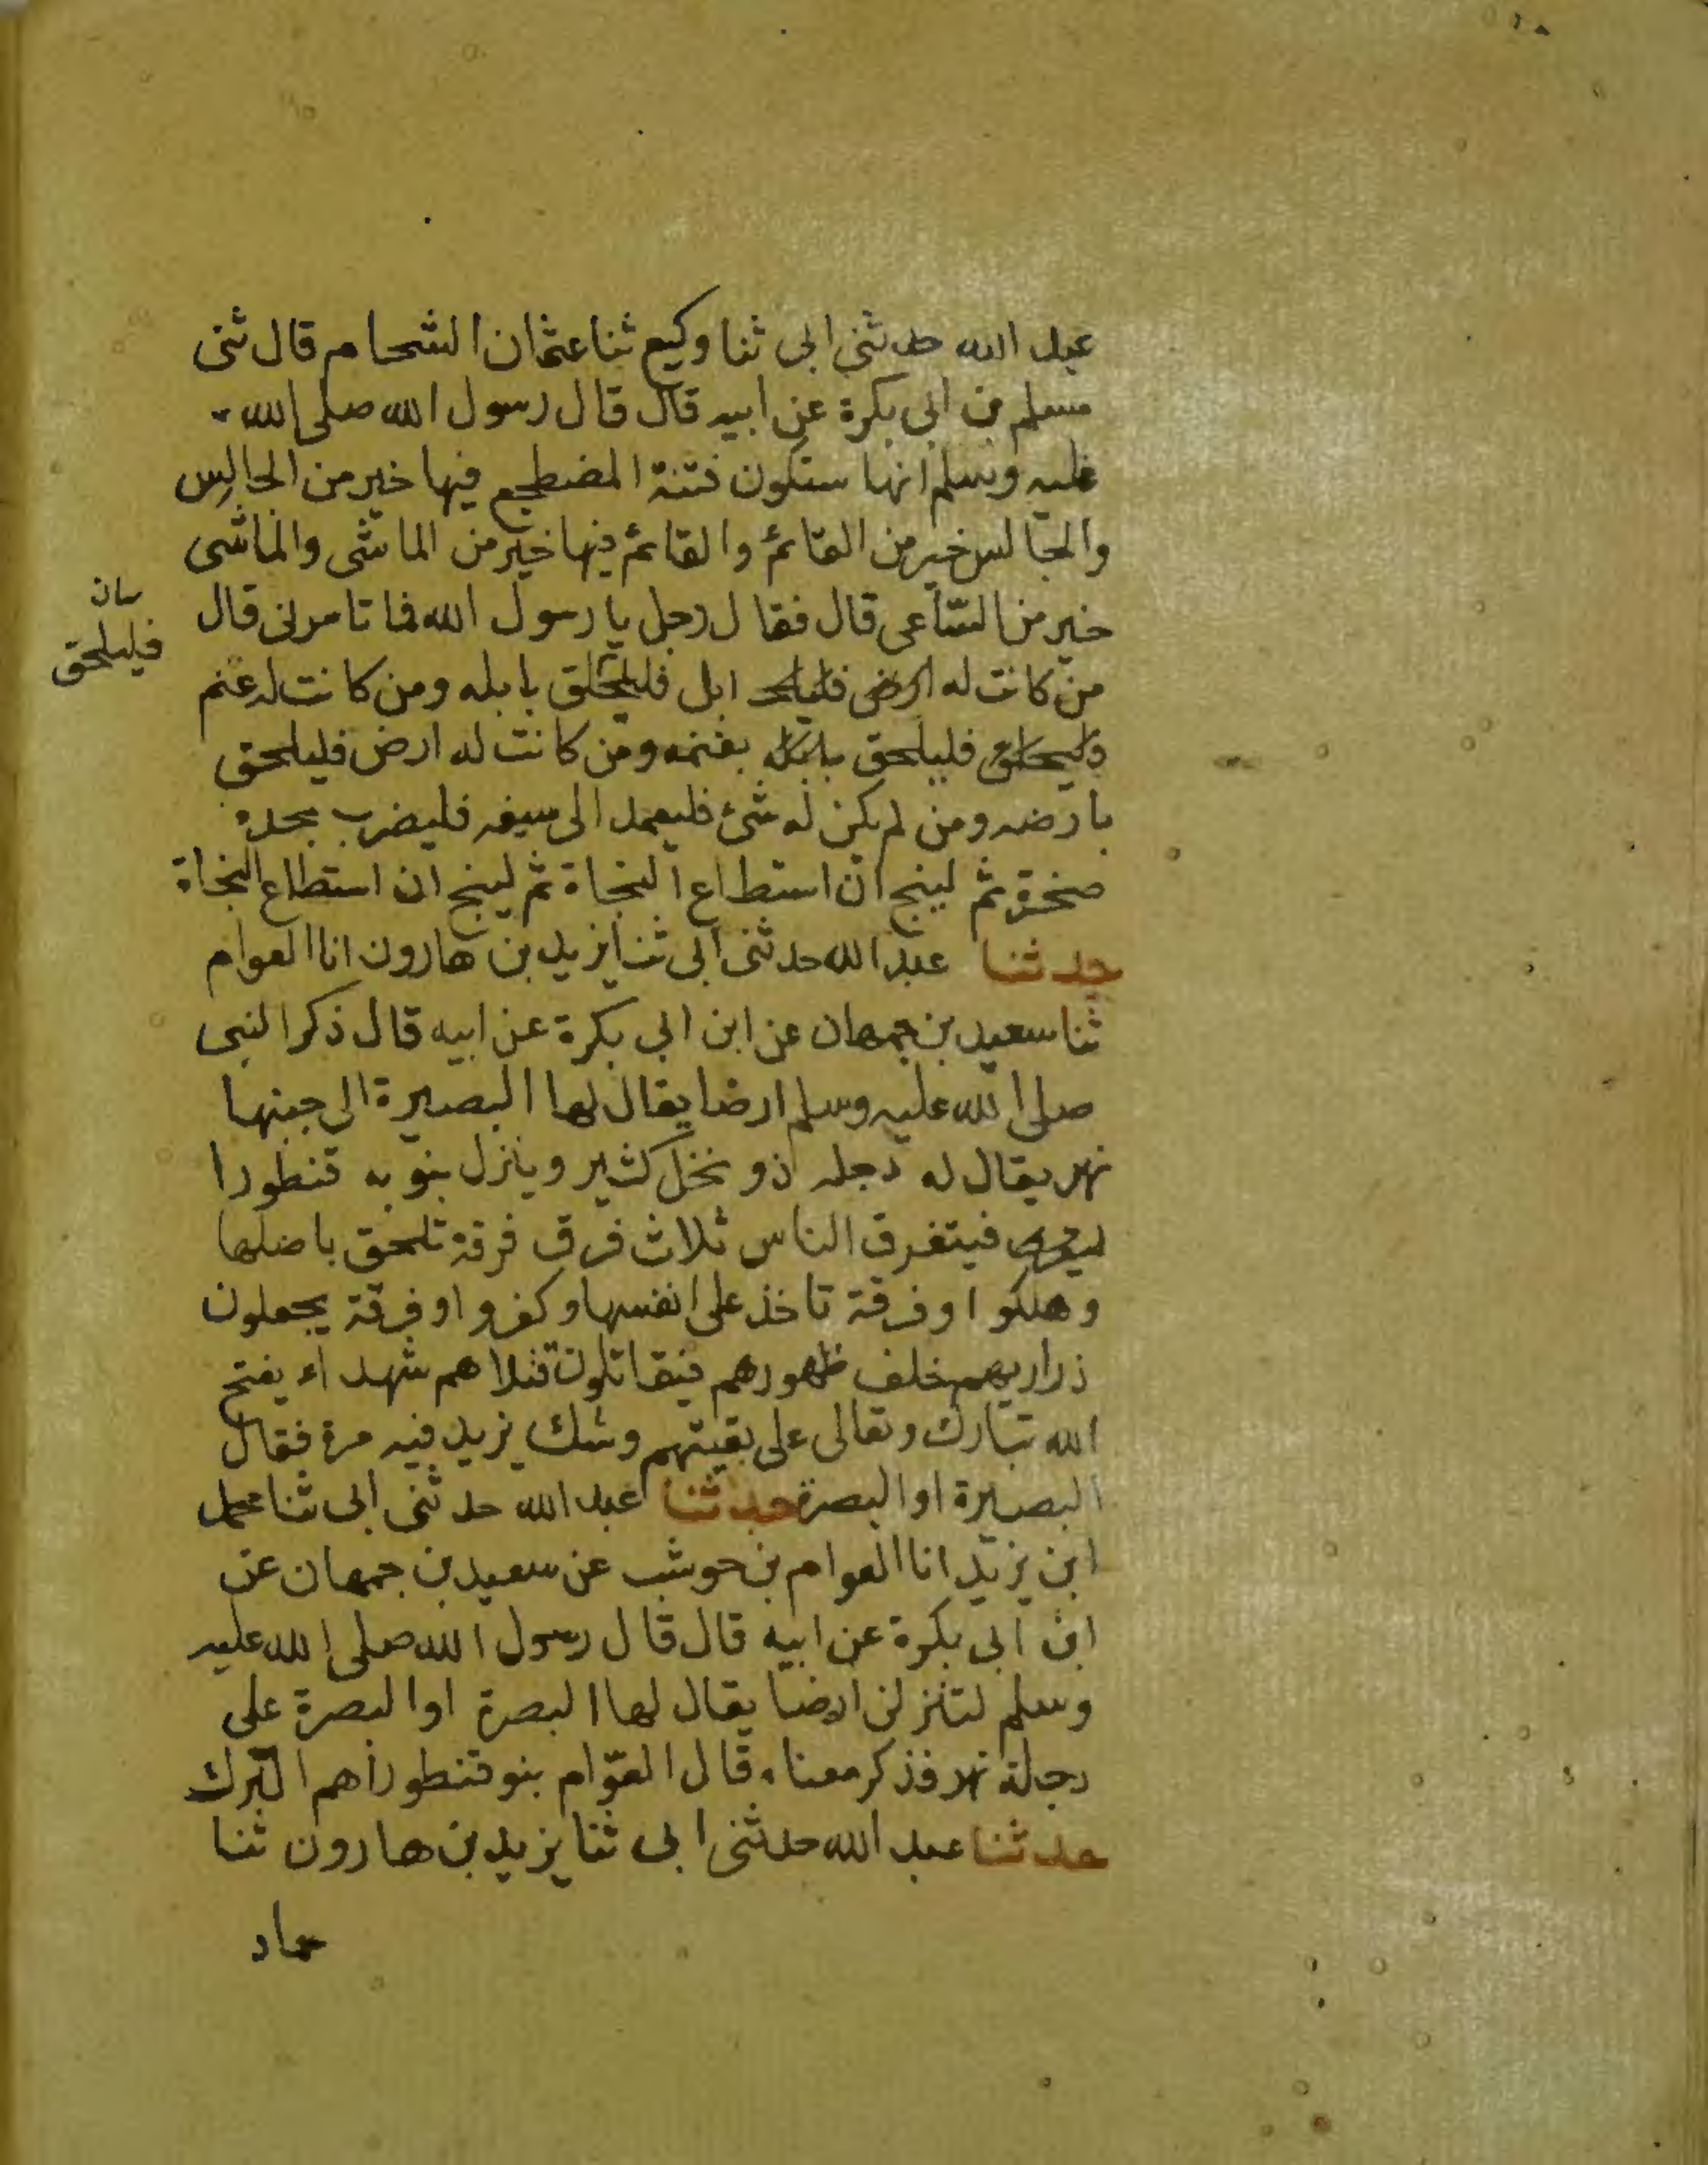 عبد الله حدثني ابي ثنا وكيع ثنا عثمان الشحام قال ثنى
مسلم بن ابي بكرة عن ابيه قال قال رسول الله صلى الله
عليه وسلم انها ستكون فتنة المضطجع فيها خير من الجالس
والجالس خير من القائم والقائم فيها خير من الماشى والماشى
خير من الساعى قال فقال رجل يا رسول الله فما تامرنى قال
بيان
فليلحق
من كانت له ارض فليلحـ ابل فليلحلق بابله ومن كانت له غنم
فليلحق بابله بغنمه ومن كانت له ارض فليلحق
بارضه ومن لم يكن له شئ فليعمد الى سيفه فليضرب بحده
صخرة ثم لينج ان استطاع النجاة ثم لينج ان استطاع النجاة
حدثنا عبد الله حدثنى ابى ثنا يزيد بن هارون انا العوام
ثنا سعيد بن جمهان عن ابن ابي بكرة عن ابيه قال ذكر النبى
صلى الله عليه وسلم ارضا يقال لها البصيرة الى جنبها
نهر يقال له دجله ذو نخل كثير وينزل بنو به قنطورا
فيتفرق الناس ثلاث فرق فرقة تلحق باصلها
وهلكوا وفرقة تاخذ على انفسها وكفروا وفرقة يجعلون
ذراريهم خلف ظهورهم فيقاتلون قتلاهم شهداء يفتح
الله تبارك وتعالى على بقيتهم وشك يزيد فيه مرة فقال
البصيرة او البصرة حدثنا عبد الله حدثنى ابى ثنا محمد
ابن يزيد انا العوام بن حوشب عن سعيد بن جمهان عن
ابن ابى بكرة عن ابيه قال قال رسول الله صلى الله عليه
وسلم لتنزلن ارضا يقال لها البصرة او البصرة على
دجلة نهر فذكر معناه قال العوّام بنو قنطورا هم الترك
حدثنا عبد الله حدثنى ابى ثنا يزيد بن هارون ثنا
حماد